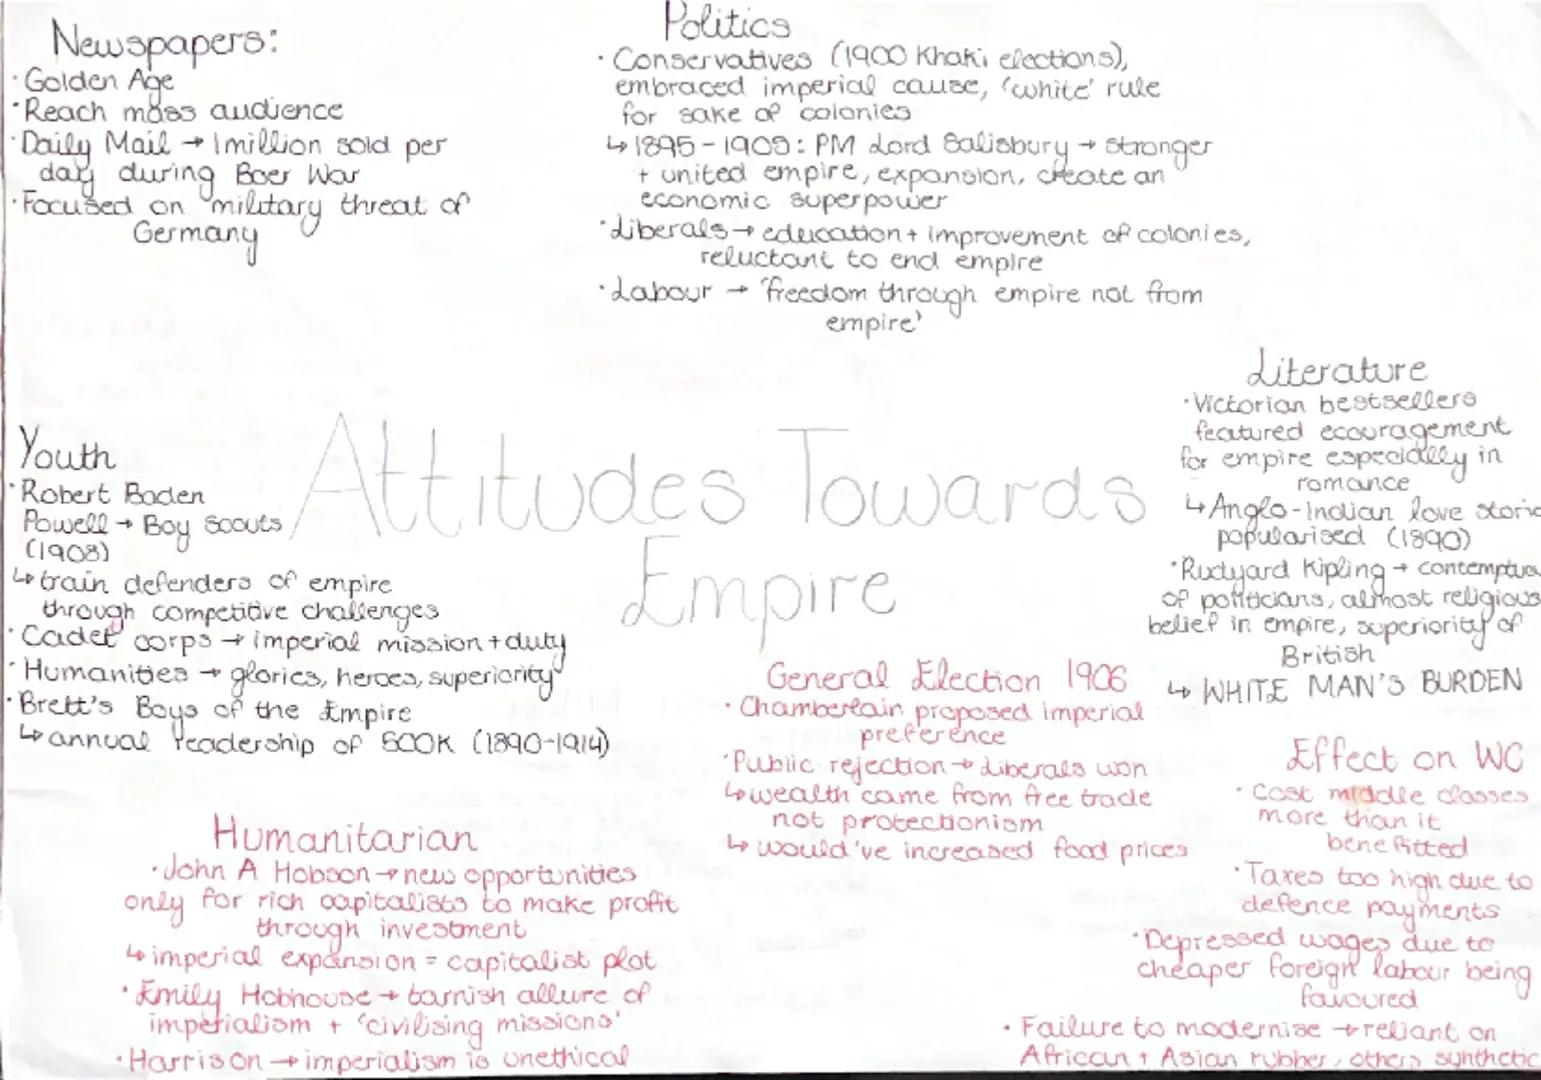 Newspapers:
· Golden Age
· Reach mass audience
· Daily Mail → 1million sold per
day during Boer War
· Focused on military threat of
Germany
Politics
· Conservatives (1900 Khaki elections),
embraced imperial cause, 'white' rule
for sake of colonies
↳ 1895-1905: PM Lord Salisbury → stronger
+ united empire, expansion, create an
economic superpower
· Liberals → education + improvement of colonies,
reluctant to end empire
· Labour → 'freedom through empire not from
empire'
Literature
· Victorian bestsellers
featured ecouragement
for empire especially in
romance
↳ Anglo-Indian love storie
popularised (1890)
· Rudyard Kipling → contemptuo
of politicians, almost religious
belief in empire, superiority of
British
↳ WHITE MAN'S BURDEN
Youth
· Robert Baden
Powell → Boy Scouts
(1908)
↳ train defenders of empire
through competitive challenges
· Cadet corps → imperial mission + duty
· Humanities → glories, heroes, superiority
· Brett's Boys of the Empire
↳ annual readership of 500K (1890-1914)
Attitudes Towards
Empire
General Election 1906
· Chamberlain proposed imperial
preference
· Public rejection → Liberals won
↳ wealth came from free trade
not protectionism
↳ would've increased food prices
Effect on WC
· Cost middle classes
more than it
benefitted
· Taxes too high due to
defence payments
· Depressed wages due to
cheaper foreign labour being
favoured
· Failure to modernise → reliant on
African + Asian rubber, others synthetic
Humanitarian
· John A Hobson → new opportunities
only for rich capitalists to make profit
through investment
↳ imperial expansion = capitalist plot
· Emily Hobhouse → tarnish allure of
imperialism + 'civilising missions'
· Harrison → imperialism is unethical